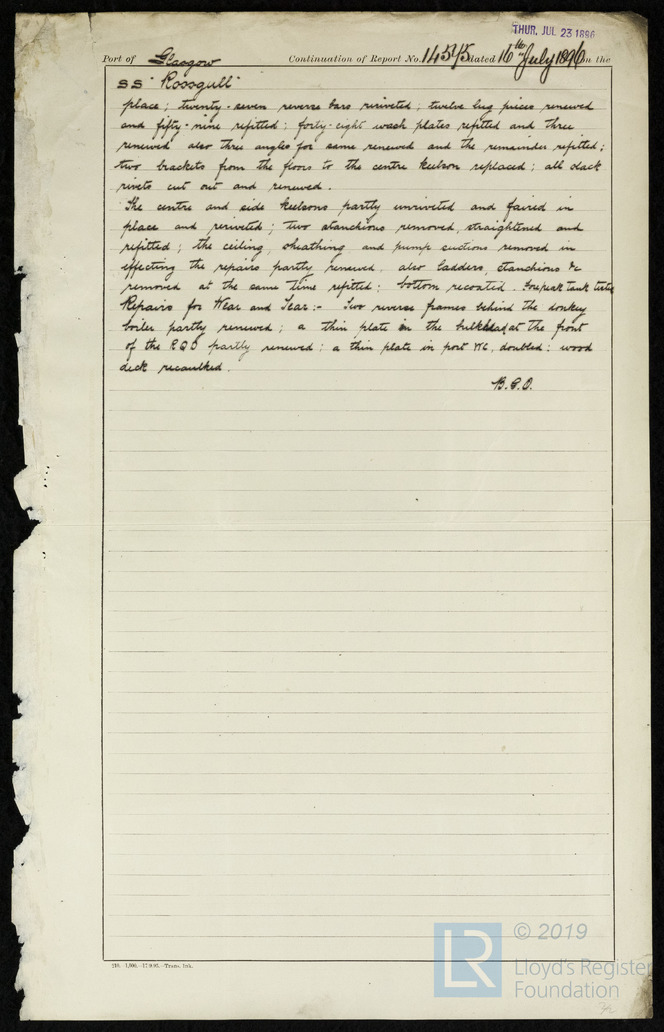 THUR. JUL 23 1896
Port of Glasgow Continuation of Report No. 14545 dated 16th July 1896 on the
SS "Rossgull"
place; twenty-seven reverse bars riveted; twelve lug pieces renewed
and fifty-nine refitted; forty-eight wash plates refitted and three
renewed also three angles for same renewed and the remainder refitted;
two brackets from the floors to the centre keelson replaced; all slack
rivets cut out and renewed.
The centre and side keelsons partly unriveted and faired in
place and reriveted; two stanchions removed, straightened and
refitted; the ceiling, sheathing and pump suctions removed in
effecting the repairs partly renewed, also ladders, stanchions &c
removed at the same time refitted; bottom recoated. Forepeak tank tested
Repairs for Wear and Tear:- Two reverse frames behind the donkey
boiler partly renewed; a thin plate on the bulkhead at the front
of the RQD partly renewed; a thin plate in port WC. doubled; wood
deck recaulked.
B.S.O.
210. 1,000. -17.9.95.-Trans. Ink.
LR © 2019
Lloyd's Register
Foundation